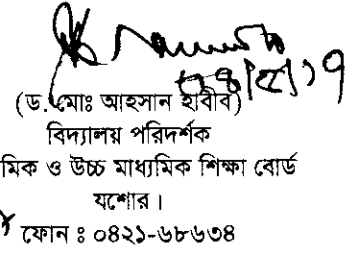 ০৪|৫|১৭
(ড. মোঃ আহসান হাবীব)
বিদ্যালয় পরিদর্শক
মিক ও উচ্চ মাধ্যমিক শিক্ষা বোর্ড
যশোর।
ফোন ঃ ০৪২১-৬৮৬৩৪